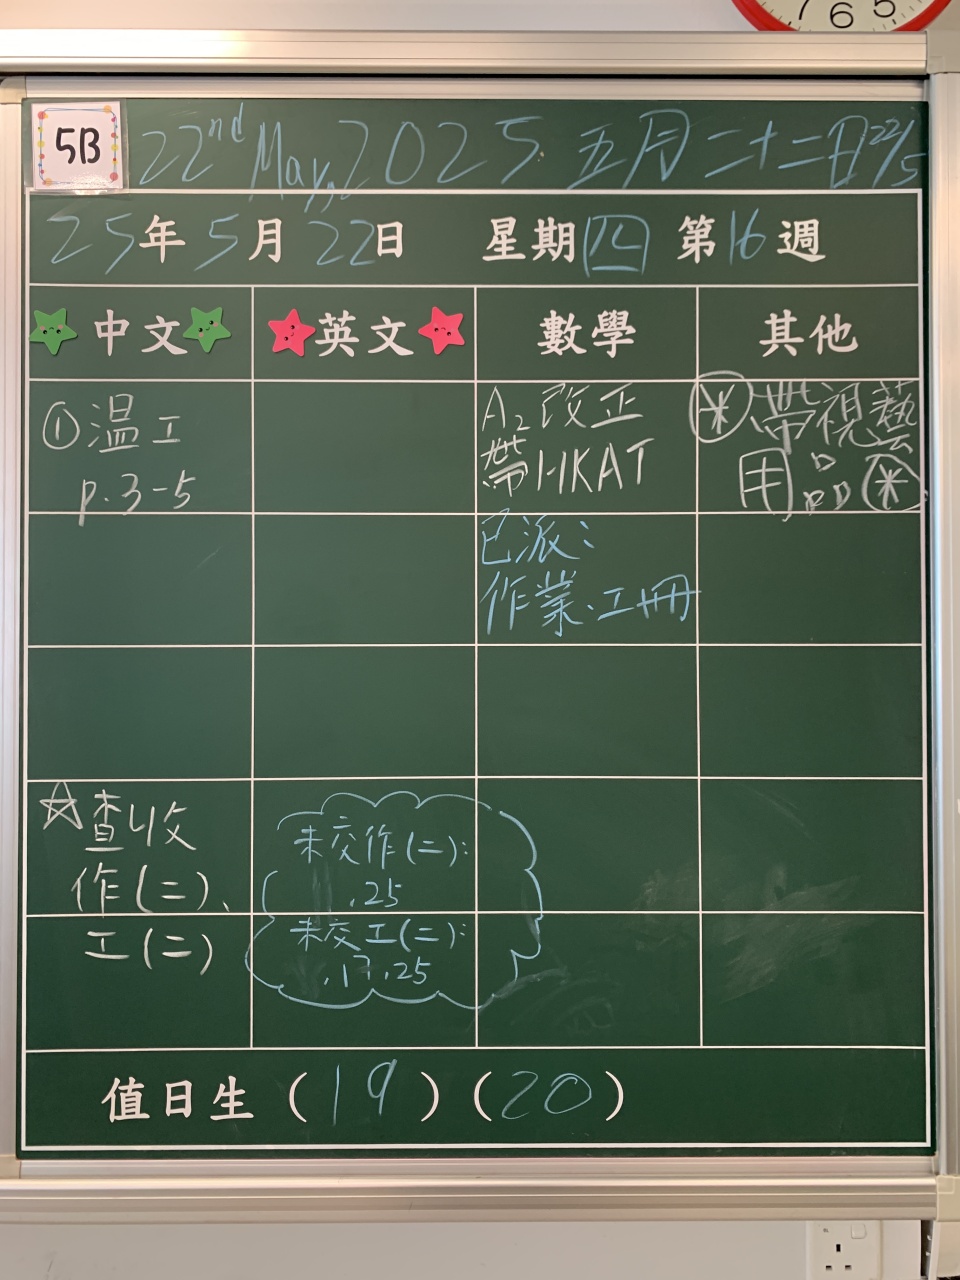 7 6 5
5B
22nd May, 2025 五月二十二日 22/5
25年5月22日 星期四 第16週
中文 英文 數學 其他
①温工
p.3-5
A2改正
帶HKAT
帶視藝
用品
已派:
作業、工冊
☆查收
作(二)、
工(二)
未交作(二):
.25
未交工(二):
.17.25
值日生(19)(20)